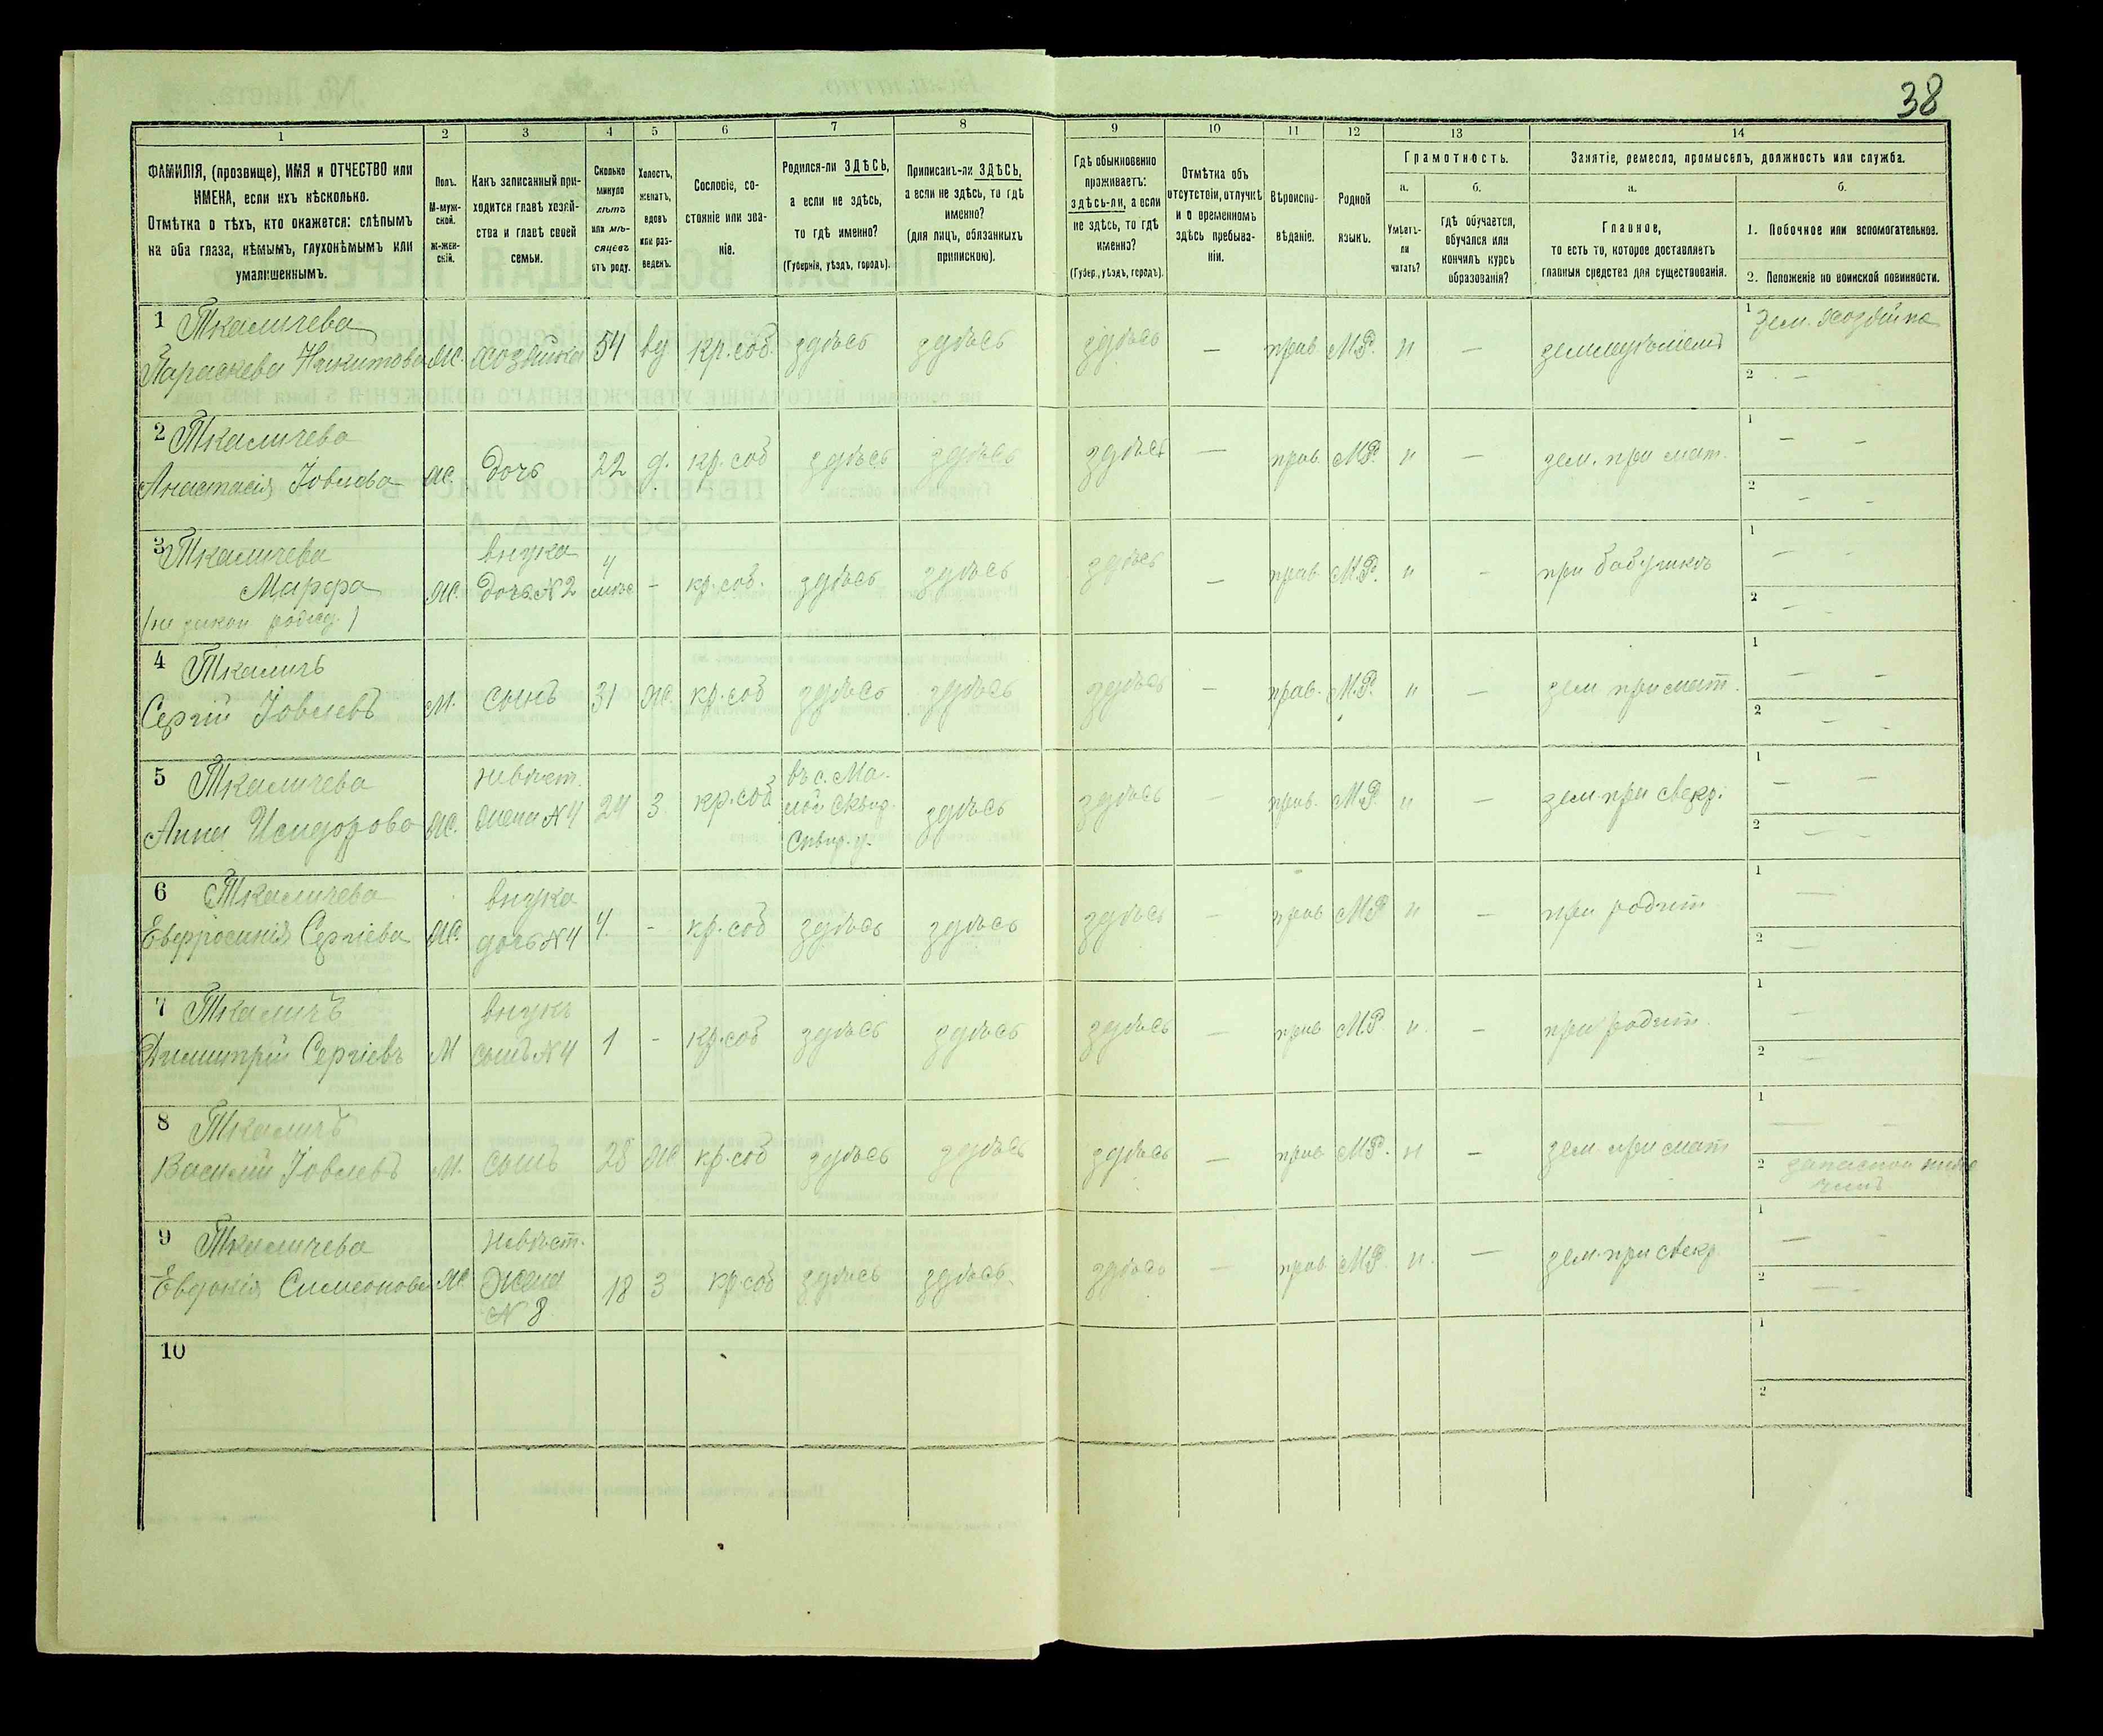 38
1 2 3 4 5 6 7 8 9 10 11 12 13 14
ФАМИЛІЯ, (прозвище), ИМЯ и ОТЧЕСТВО или
ИМЕНА, если ихъ нѣсколько.
Отмѣтка о тѣхъ, кто окажется: слѣпымъ
на оба глаза, нѣмымъ, глухонѣмымъ или
умалишеннымъ.
Полъ.
М-муж-
ской.
Ж-жен-
скій.
Какъ записанный при-
ходится главѣ хозяй-
ства и главѣ своей
семьи.
Сколько
минуло
лѣтъ
или мѣ-
сяцевъ
отъ роду.
Холостъ,
женатъ,
вдовъ
или раз-
веденъ.
Сословіе, со-
стояніе или зва-
ніе.
Родился-ли ЗДѢСЬ,
а если не здѣсь,
то гдѣ именно?
(Губернія, уѣздъ, городъ).
Приписанъ-ли ЗДѢСЬ,
а если не здѣсь, то гдѣ
именно?
(для лицъ, обязанныхъ
припискою).
Гдѣ обыкновенно
проживаетъ:
здѣсь-ли, а если
не здѣсь, то гдѣ
именно?
(Губер., уѣздъ, городъ).
Отмѣтка объ
отсутствіи, отлучкѣ
и о временномъ
здѣсь пребыва-
ніи.
Вѣроиспо-
вѣданіе.
Родной
языкъ.
Грамотность.
а.
Умѣетъ-
ли
читать?
б.
Гдѣ обучается,
обучался или
кончилъ курсъ
образованія?
Занятіе, ремесло, промыселъ, должность или служба.
а.
Главное,
то есть то, которое доставляетъ
главныя средства для существованія.
б.
1. Побочное или вспомогательное.
2. Положеніе по воинской повинности.
1 Ткаличева
Параскева Никитова Ж. хозяйка 54 вд кр. соб. здѣсь здѣсь здѣсь — прав. М.Р. н — 1 зем. хозяйка
2 —
2 Ткаличева
Анастасія Іовлева Ж. дочь 22 д. кр. соб здѣсь здѣсь здѣсь — прав. М.Р. н — зем. при мат. 1 — —
2 — —
3 Ткаличева
Марфа
внука
дочь N 2
Ж. 4 — кр. соб. здѣсь здѣсь здѣсь — прав. М.Р. н — при бабушкѣ 1 — —
2 — —
4 Ткаличъ
Сергій Іовлевъ М. сынъ 31 Ж. кр. соб здѣсь здѣсь здѣсь — прав. М.Р. н — зем при мат. 1 — —
2 — —
5 Ткаличева
Анна Исидорова Ж.
невѣст.
жена N 4
24 з. кр. соб
въ с. Ма-
лой Сквир.
Сквир. у.
здѣсь здѣсь — прав. М.Р. н — зем. при свекр. 1 — —
2 — —
6 Ткаличева
Евфросинія Сергіева Ж.
внука
дочь N 4
4. — кр. соб здѣсь здѣсь здѣсь — прав М.Р н — при родит 1 —
2 —
7 Ткаличъ
Димитрій Сергіевъ М
внукъ
сынъ N 4
1 — кр. соб здѣсь здѣсь здѣсь — прав М.Р. н. — при родит. 1 —
2 —
8 Ткаличъ
Василій Іовлевъ М. сынъ 28 Ж кр. соб здѣсь здѣсь здѣсь — прав М.Р. н — зем при мат 1 — —
2 запасной
чинъ
9 Ткаличева
Евдокія Симеонова Ж
невѣст.
жена
N 8.
18 з кр. соб здѣсь здѣсь. здѣсь — прав М.Р. н. — зем. при свекр 1 — —
2 — —
10
1
2